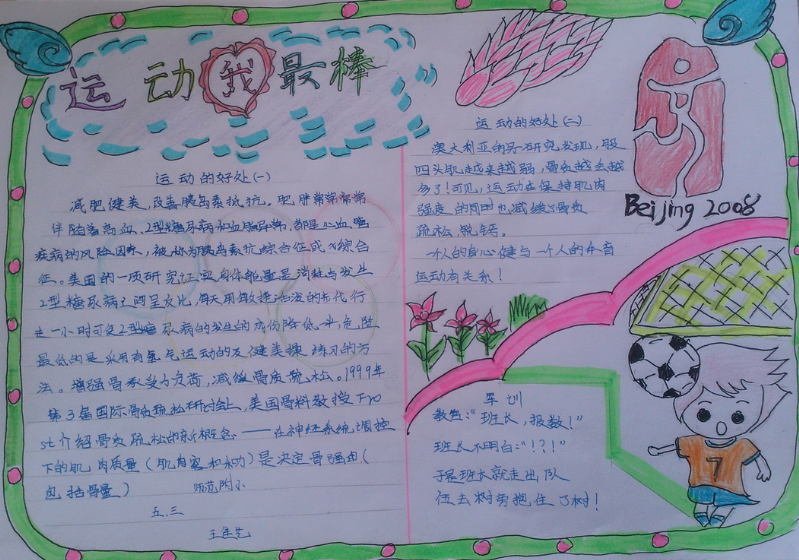 运动我最棒
运动的好处(一)
减肥健美,改善胰岛素抵抗。肥胖常常常常
伴随着高血,2型糖尿病和血脂异常,都是心血管
疾病的风险因素,被称为胰岛素抗综合征或X综合
征。美国的一项研究证实身体能量是消耗与发生
2型糖尿病
一小时可使2型糖尿病的发生的
最低的是采用有氧运动的及健美操练习的方
法。增强骨承受力负荷,减微骨质疏松。1999年
第3届国际骨质疏松研讨会上,美国骨科教授Fro
st介绍骨质疏松的新概念。——在神经系统调控
下的肌肉质量(肌肉容积和力)是决定骨强度(
包括骨量)
师范附小
五.三
运动的好处(二)
澳大利亚的另一研究发现,股
四头肌越来越弱,骨质越去越
多了!可见,运动在保持肌肉
强度的同时也减缓了骨质
疏松脱钙。
一个人的身心健与一个人的体育
运动有关系!
Beijing 2008
军训
教官:“班长,报数!”
班长不明白:“!?!”
于是班长就走出队
伍去树旁抱住了树!
7